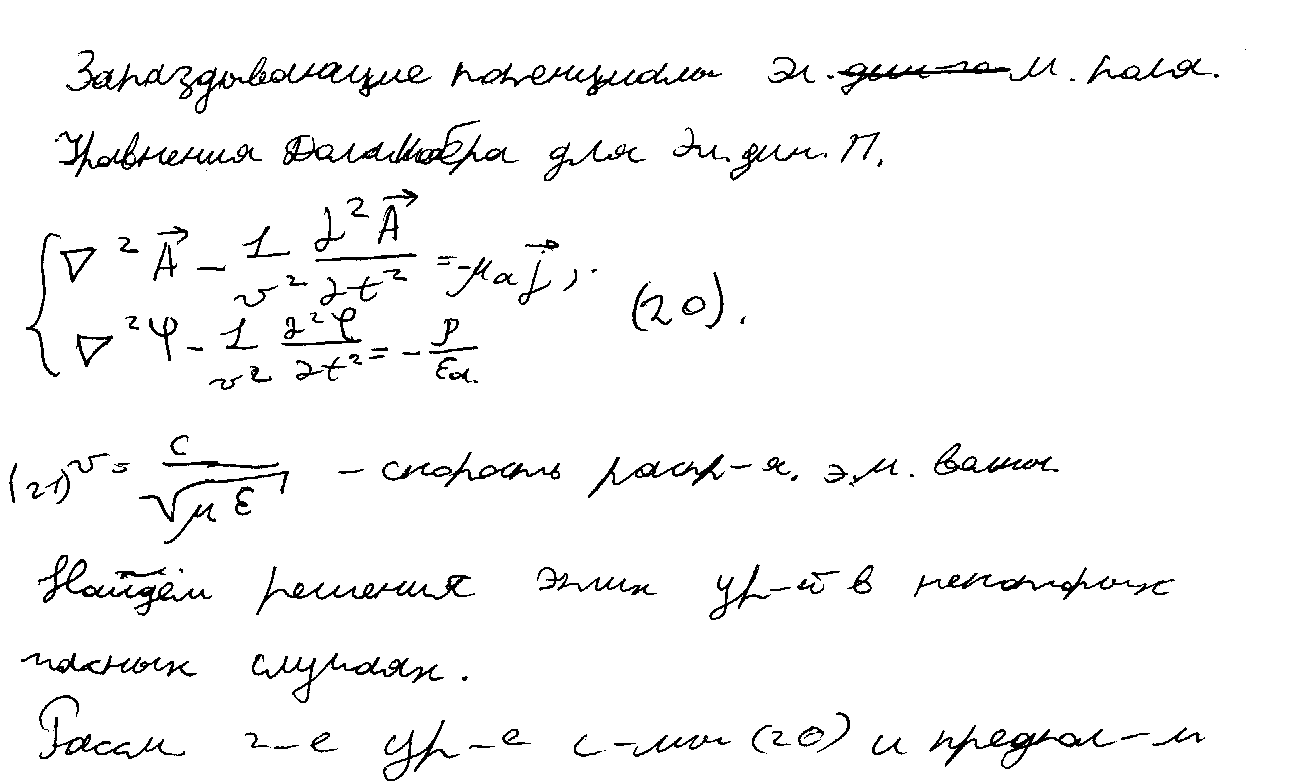 Запаздывающие потенциалы эл. м. поля.
Уравнения Даламбера для эл. дин. П.
∇² A⃗ − 1/v² ∂²A⃗/∂t² = −μₐ j⃗,
∇²φ − 1/v² ∂²φ/∂t² = − ρ/εₐ. (20).
(21) v = c/√με – скорость распр-я. э.м. волны
Найдём решения этих ур-й в некоторых
частных случаях.
Рассм 2-е ур-е с-мы (20) и предпол-м